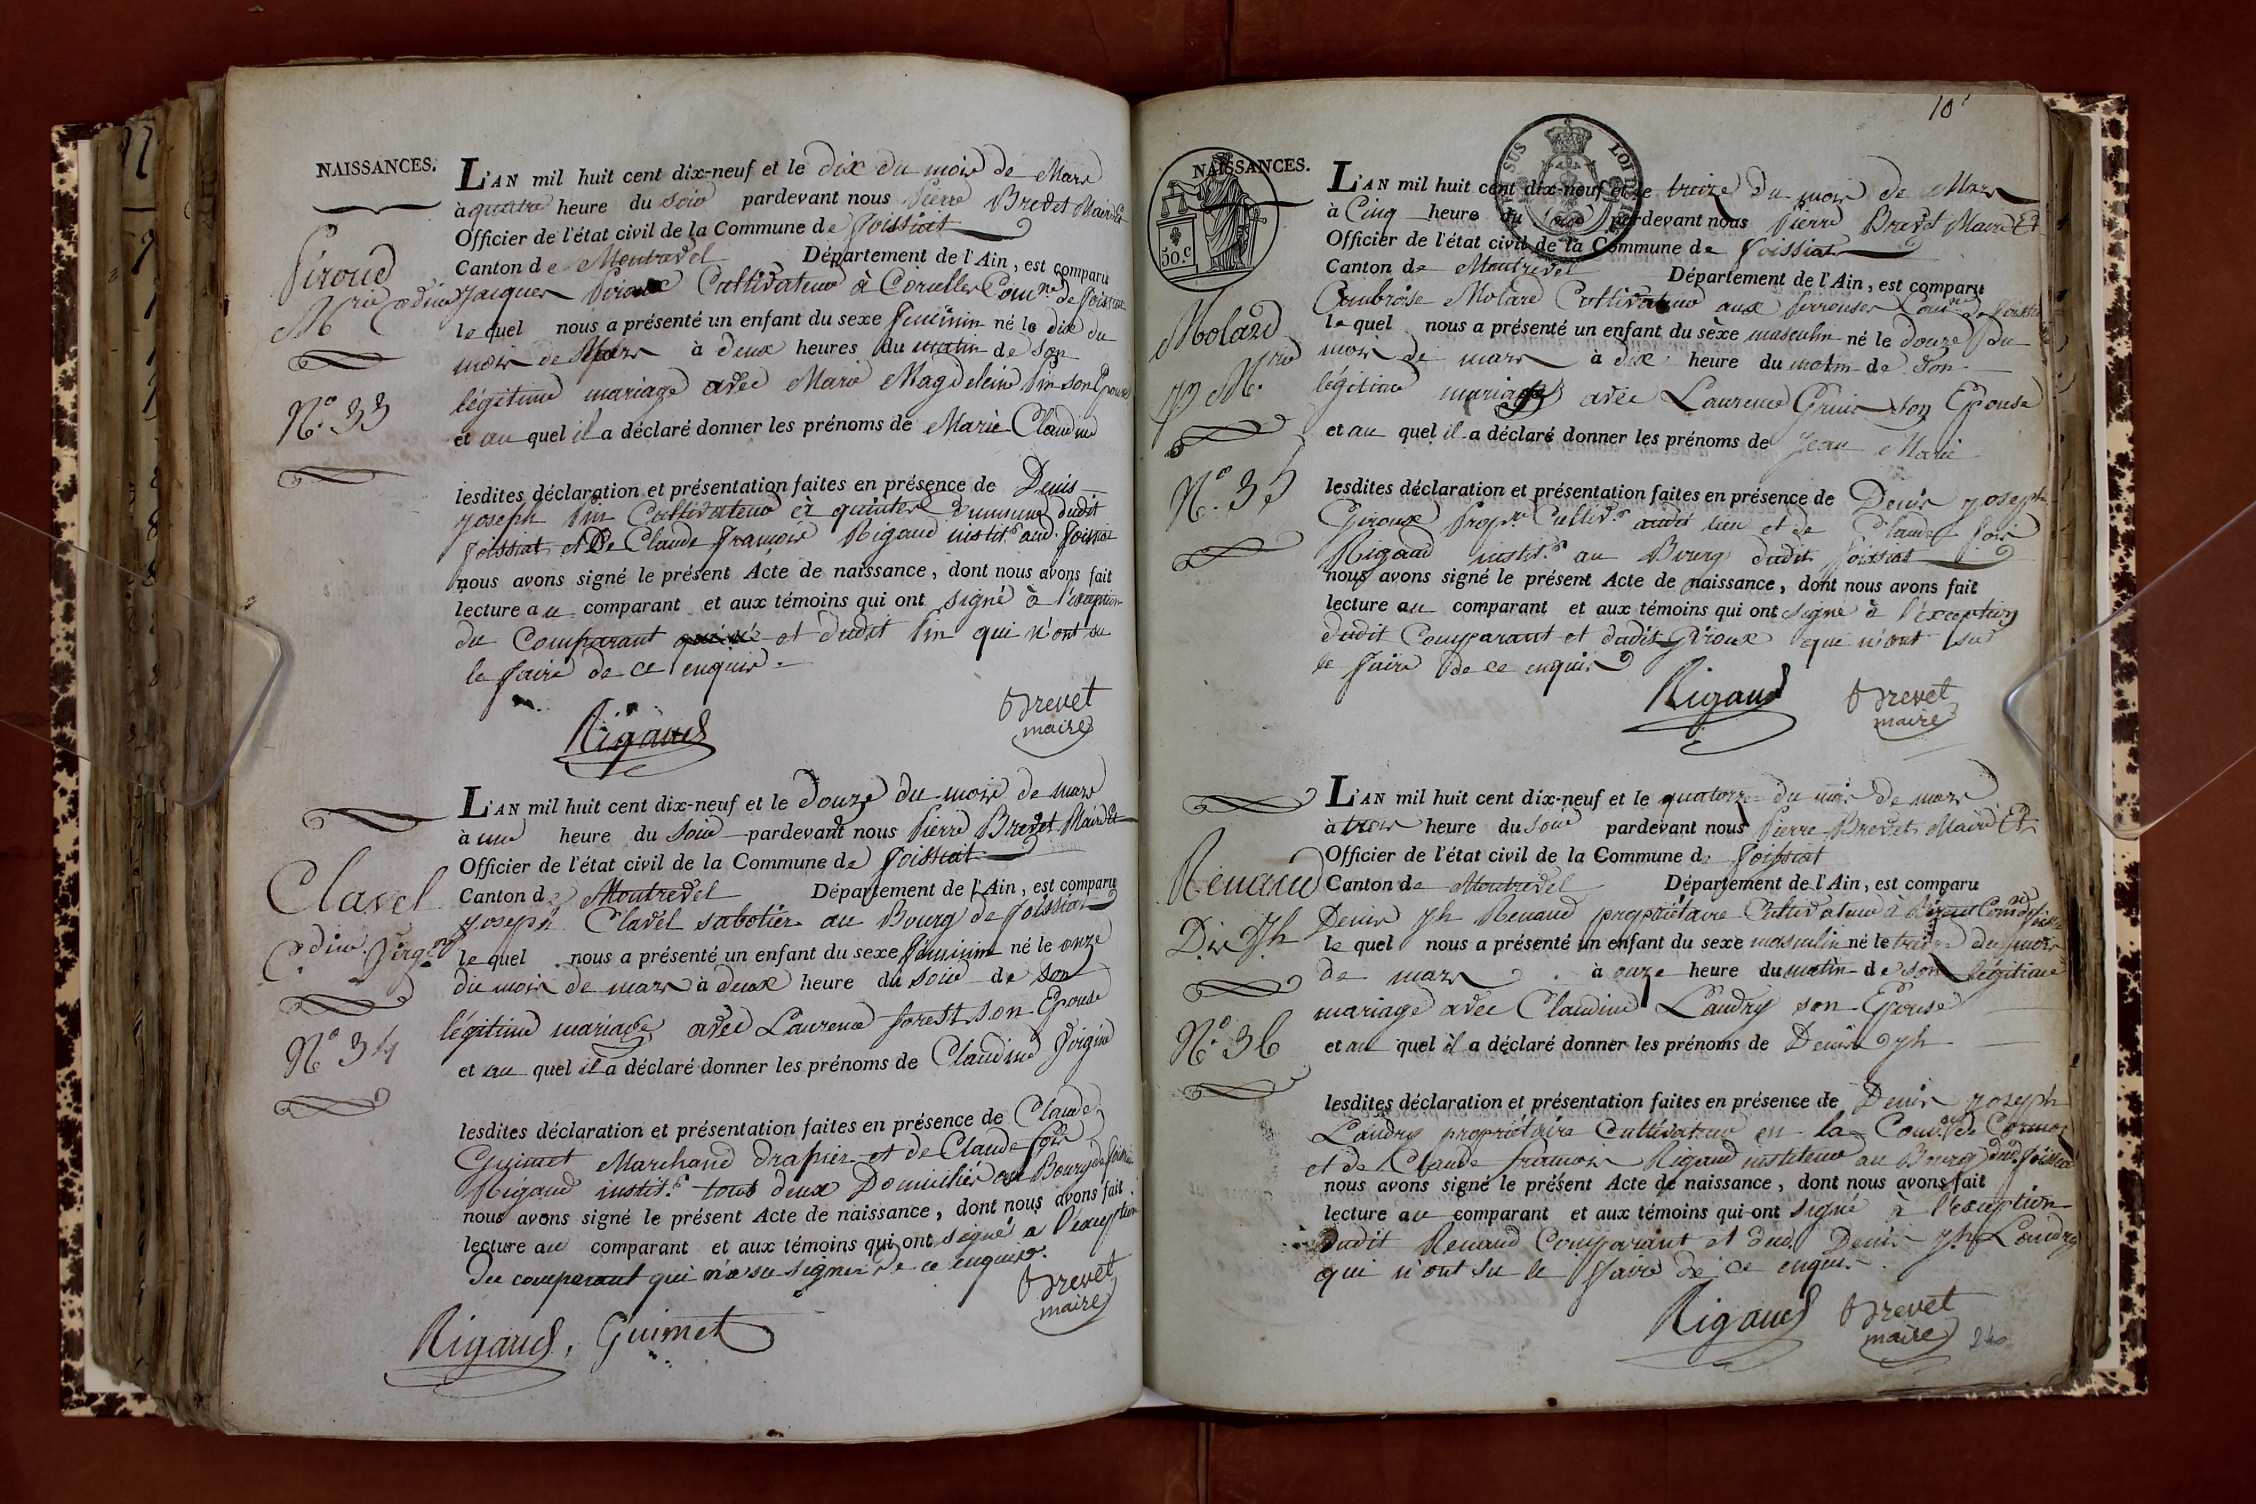 NAISSANCES.
L'AN mil huit cent dix-neuf et le dix du mois de Mars
à quatre heure du soir pardevant nous Pierre Brevet Maire Et
Officier de l'état civil de la Commune de foissiat
Canton de Montrevel Département de l'Ain, est comparu
Piroud
Mrie Cdine
Jacques Cultivateur à Corcelles Comne de foissiat
le quel nous a présenté un enfant du sexe féminin né le dix du
mois de Mars à deux heures du matin de son
légitime mariage avec Marie Magdeleine Pin son Epouse
N.o 33
et au quel il a déclaré donner les prénoms de Marie Claudine
lesdites déclaration et présentation faites en présence de Denis
Joseph Pin Cultivateur et dudit
foissiat et De Claude françois Rigaud instit.r aud. foissiat
nous avons signé le présent Acte de naissance, dont nous avons fait
lecture au comparant et aux témoins qui ont signé à l'exception
du Comparant et dudit Pin qui n'ont su
le faire de ce enquis.
Rigaud
Brevet
maire
L'AN mil huit cent dix-neuf et le douze du mois de mars
à une heure du soir pardevant nous Pierre Brevet Maire Et
Officier de l'état civil de la Commune de foissiat
Clavel
Cdine Virgne
Canton de Montrevel Département de l'Ain, est comparu
Joseph Clavel sabotier au Bourg de foissiat
le quel nous a présenté un enfant du sexe féminin né le onze
du mois de mars à deux heure du soir de son
légitime mariage avec Laurence forest son Epouse
N.o 34
et au quel il a déclaré donner les prénoms de Claudine Virginie
lesdites déclaration et présentation faites en présence de Claude
Guimet Marchand drapier et de Claude fois
Rigaud instit.r tous deux Domiciliés au Bourg de foissiat
nous avons signé le présent Acte de naissance, dont nous avons fait
lecture au comparant et aux témoins qui ont signé a l'exception
du comparant qui n'a su signer de ce enquis.
Brevet
maire
Rigaud, Guimet
10
NAISSANCES.
50.C
L'AN mil huit cent dix-neuf et le treize du mois de Mars
à Cinq heure du soir pardevant nous Pierre Brevet Maire Et
Officier de l'état civil de la Commune de foissiat
Canton de Montrevel Département de l'Ain, est comparu
Molard
Jn Mrie
Ambroise Molard Cultivateur aux Comne de foissiat
le quel nous a présenté un enfant du sexe masculin né le douze du
mois de mars à dix heure du matin de son
légitime mariage avec Laurence son Epouse
et au quel il a déclaré donner les prénoms de Jean Marie
N.o 35
lesdites déclaration et présentation faites en présence de Denis Joseph
Giroux Propre Cultivr audit lieu et de Claude fois
Rigaud instit.r au Bourg dudit foissiat
nous avons signé le présent Acte de naissance, dont nous avons fait
lecture au comparant et aux témoins qui ont signé à l'exception
dudit Comparant et dudit Giroux qui n'ont su
le faire de ce enquis
Rigaud
Brevet
maire
L'AN mil huit cent dix-neuf et le quatorze du mois de mars
à trois heure du soir pardevant nous Pierre Brevet Maire Et
Officier de l'état civil de la Commune de foissiat
Renaud
Dis Jh
Canton de Montrevel Département de l'Ain, est comparu
Denis Jh Renaud propriétaire Cultivateur à Comne de foissiat
le quel nous a présenté un enfant du sexe masculin né le treize du mois
de mars à onze heure du matin de son légitime
mariage avec Claudine Landry son Epouse
N.o 36
et au quel il a déclaré donner les prénoms de Denis Jh
lesdites déclaration et présentation faites en présence de Denis Joseph
Landry propriétaire Cultivateur en la Comne de Cormoz
et de Claude françois Rigaud instituteur au Bourg dud. foissiat
nous avons signé le présent Acte de naissance, dont nous avons fait
lecture au comparant et aux témoins qui ont signé à l'exception
dudit Renaud Comparant et dud. Denis Jh Landry
qui n'ont su le faire de ce enquis.
Rigaud
Brevet
maire